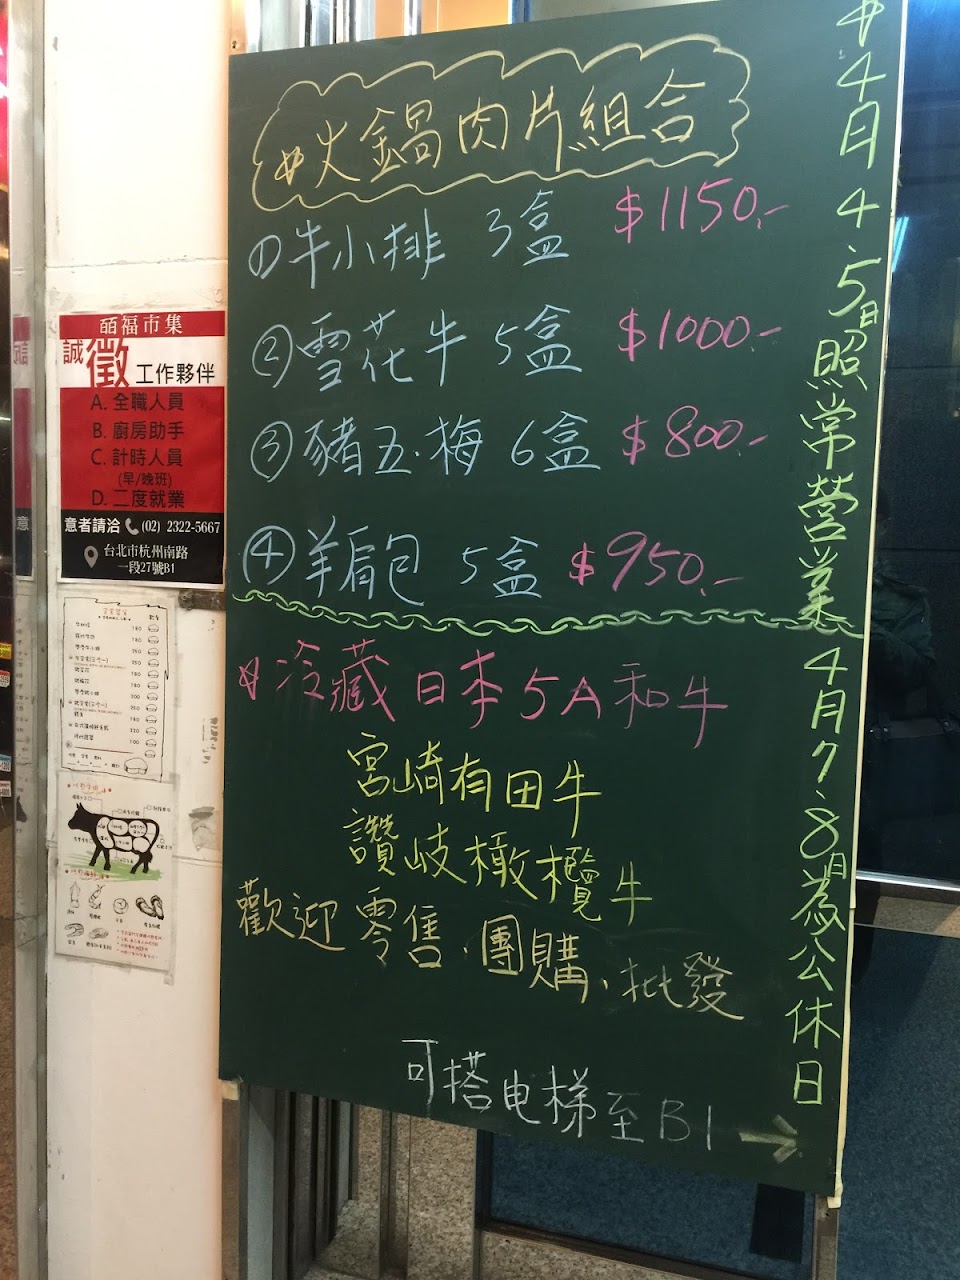 火鍋肉片組合
①牛小排 3盒 $1150.-
②雪花牛 5盒 $1000.-
③豬五.梅 6盒 $800.-
④羊肩包 5盒 $950.-
冷藏日本5A和牛
宮崎有田牛
讚岐橄欖牛
歡迎零售、團購、批發
可搭电梯至B1→
4月4.5日照常營業
4月7.8日為公休日
皕福市集
誠徵工作夥伴
A. 全職人員
B. 廚房助手
C. 計時人員
(早/晚班)
D. 二度就業
意者請洽 (02) 2322-5667
台北市杭州南路
一段27號B1